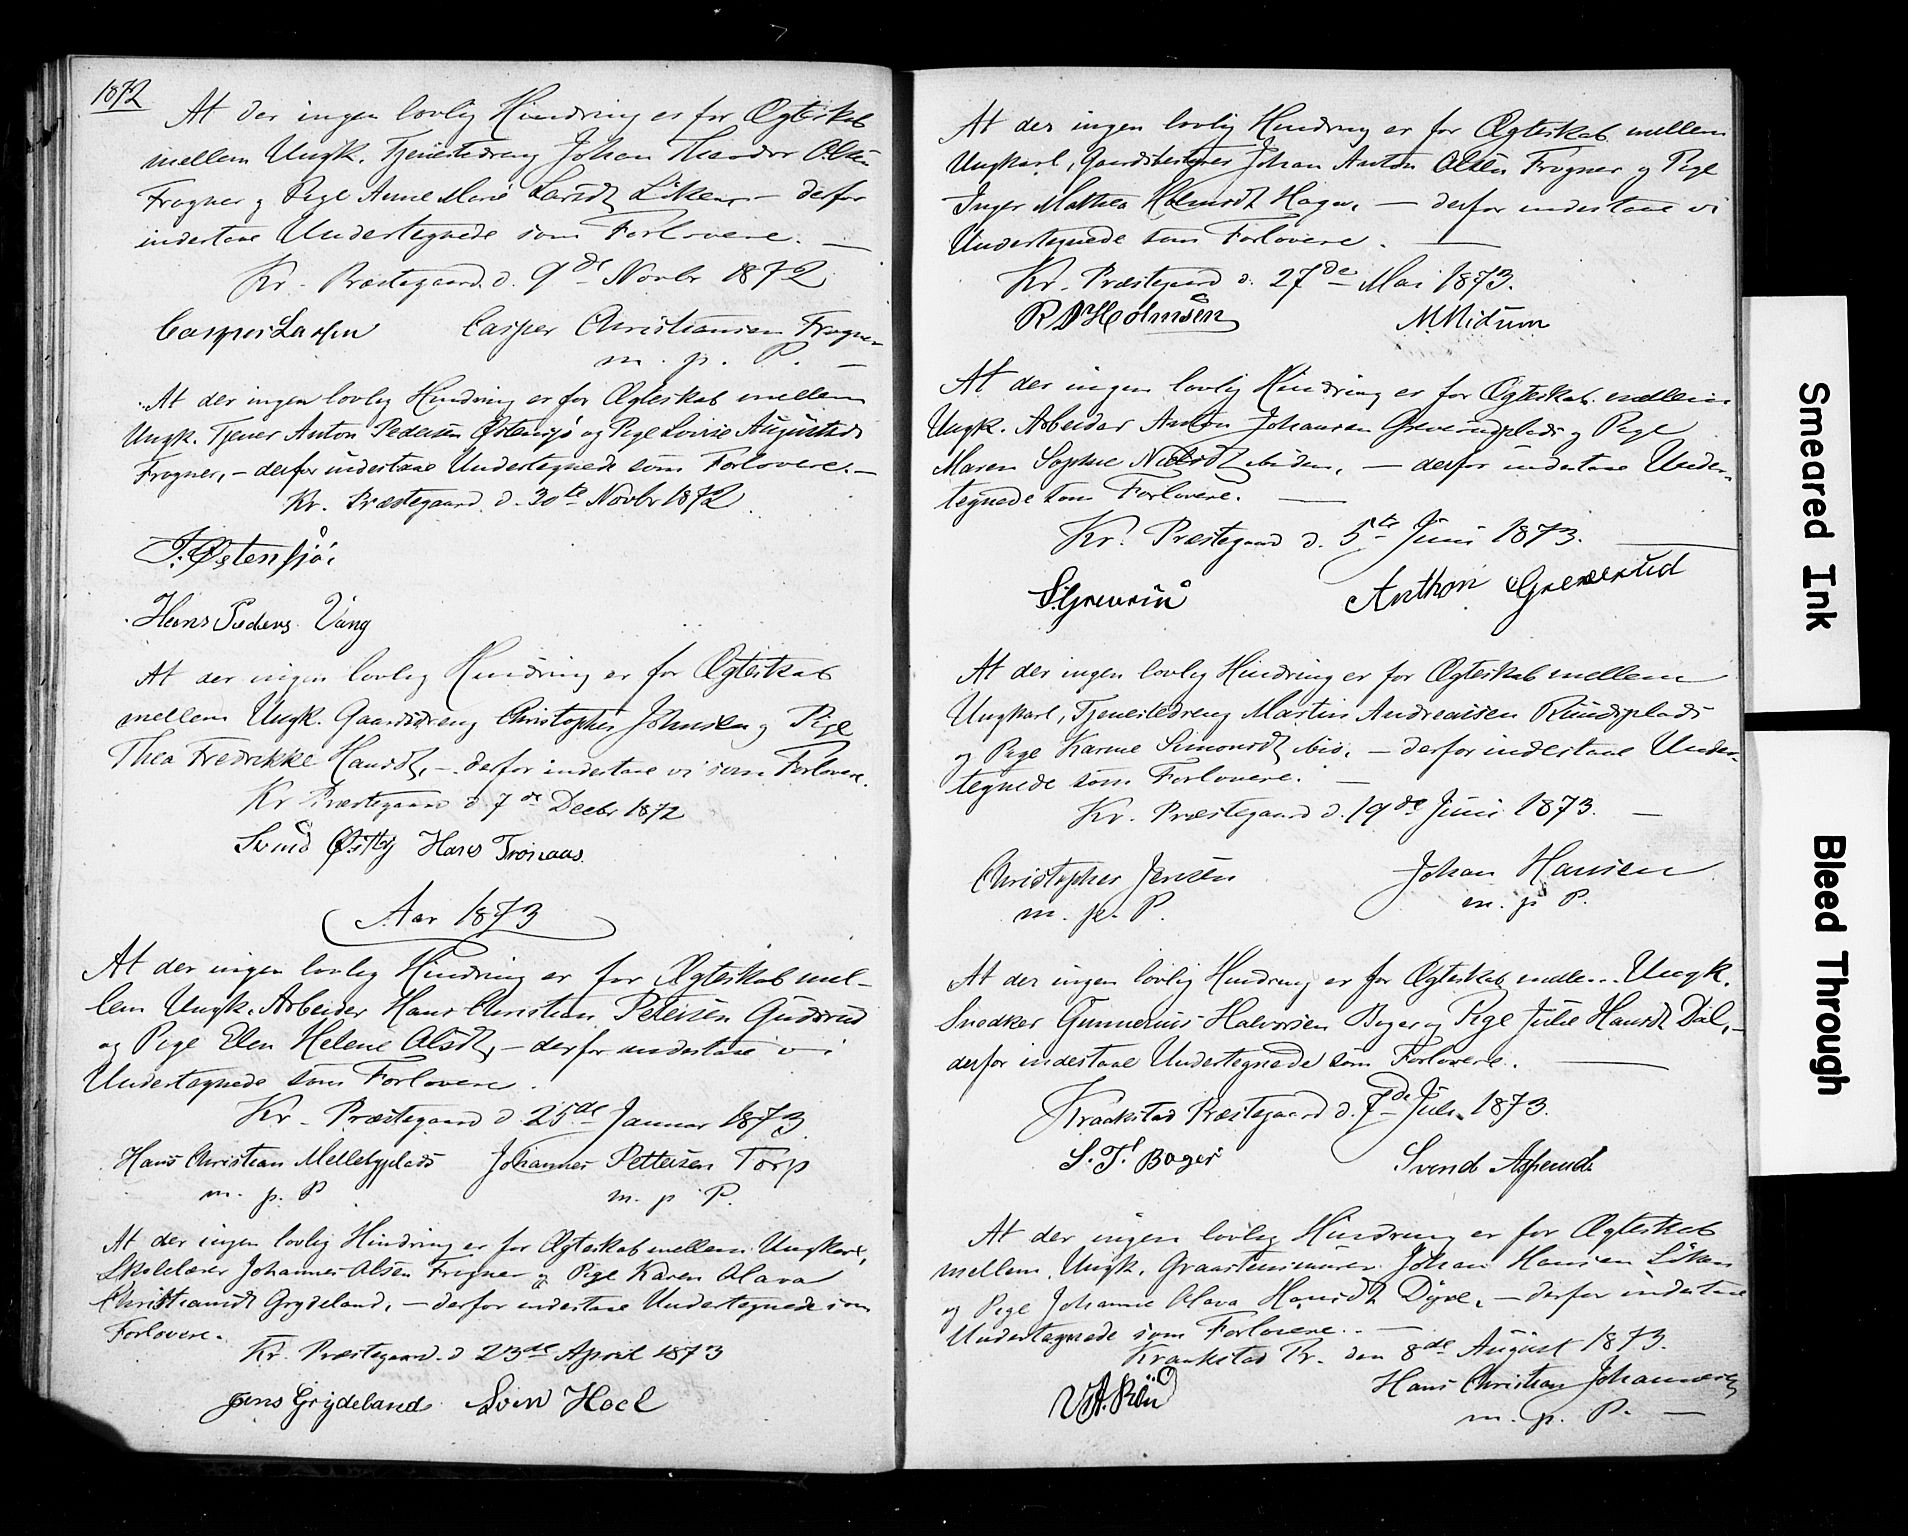 1872
At der ingen lovlig Hindring er for Ægteskab
mellem Ungk. Tjenestedreng Johan Theodor Olsen
Frogner og Pige Anne Marie Larsdt Liken, – derfor
indestaae Undertegnede som Forlovere. —
Kr. Præstegaard d. 9de Novbr 1872
Casper Larsen Casper Christiansen Frogner
m. p. P. —
At der ingen lovlig Hindring er for Ægteskab mellem
Ungk. Tjener Anton Pedersen Østensjø og Pige Lovise Augustsdt
Frogner, – derfor indestaae Undertegnede som Forlovere. –
Kr. Præstegaard d. 30te Novbr 1872
T. Østensjø
Hans Peders. Vang
At der ingen lovlig Hindring er for Ægteskab
mellem Ungk. Gaardsdreng Christopher Johnsen og Pige
Thea Fredrikke Hansdt, – derfor indestaae vi som Forlovere.
Kr Præstegaard d. 7de Decbr 1872
Svend Østby Hans Tronaas
Aar 1873
At der ingen lovlig Hindring er for Ægteskab mel-
lem Ungk. Arbeider Hans Christian Petersen Gudsrud
og Pige Elen Helene Olsdt, – derfor indestaae vi
Undertegnede som Forlovere.
Kr. Præstegaard d. 25de Januar 1873
Hans Christian Mellebyplads Johannes Pettersen Torp
m. p. P m. p P.
At der ingen lovlig Hindring er for Ægteskab mellem Ungkarl,
Skolelærer Johannes Olsen Frogner og Pige Karen Olava
Christiansdt Grydeland, – derfor indestaae Undertegnede som
Forlovere.
Kr. Præstegaard. d 23de April 1873
Jens Grydeland Sven Hoel
At der ingen lovlig Hindring er for Ægteskab mellem
Ungkarl, Gaardbestyrer Johan Anton Olsen Frogner og Pige
Inger Mathea Holmsdt Hagen, – derfor indestaae vi
Undertegnede som Forlovere. —
Kr. Præstegaard d. 27de Mai 1873.
R D Holmsen M. Midsem
At der ingen lovlig Hindring er for Ægteskab mellem
Ungk. Arbeider Anton Johansen Greverudplads og Pige
Maren Sophie Nielsdt ibiden, – derfor indestaae Under-
tegnede som Forlovere. —
Kr. Præstegaard d. 5te Juni 1873. —
Anthon Greverud
At der ingen lovlig Hindring er for Ægteskab mellem
Ungkarl, Tjenestedreng Martin Andreassen Rudsplads
og Pige Karine Simonsdt ibid, – derfor indestaae Under-
tegnede som Forlovere. —
Kr. Præstegaard d. 19de Juni 1873. —
Christopher Jensen Johan Hansen
m. p. P. m. p P.
At der ingen lovlig Hindring er for Ægteskab mellem Ungk.
Snedker Gunnerius Halvorsen Boger og Pige Julie Hansdt Dal, –
derfor indestaae Undertegnede som Forlovere. —
Kraakstad Præstegaard d. 7de Juli 1873.
S. T. Boger Svend Aspund
At der ingen lovlig Hindring er for Ægteskab
mellem Ungk. Graasteensmurer Johan Hansen Liken
og Pige Johanne Olava Hansdt Dyre, – derfor indestaae
Undertegnede som Forlovere. —
Kraakstad Pr. den 8de August 1873.
Hans Christian Johannesen
m. p. P. —
Smeared Ink
Bleed Through